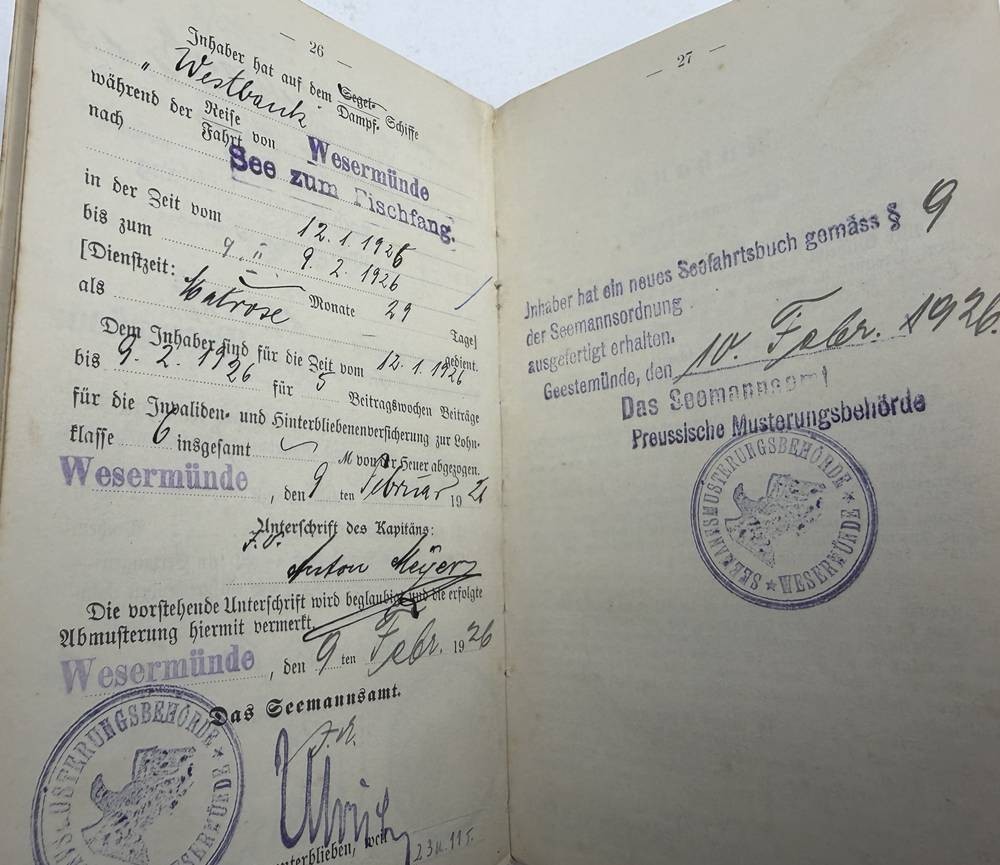 — 26 —
Inhaber hat auf dem Segel- Schiffe
Dampf-
„ Westbank
während der Reise von Wesermünde
Fahrt
nach See zum Fischfang.
in der Zeit vom 12.1.1926
bis zum 9.2.1926
[Dienstzeit: Monate 29 Tage]
als Matrose gedient.
Dem Inhaber sind für die Zeit vom 12.1.1926
bis 9.2.1926 für 5 Beitragswochen Beiträge
für die Invaliden- und Hinterbliebenenversicherung zur Lohn-
klasse 6 insgesamt M von der Heuer abgezogen.
Wesermünde, den 9 ten Februar 1926
Unterschrift des Kapitäns:
Anton Meyer
Die vorstehende Unterschrift wird beglaubigt und die erfolgte
Abmusterung hiermit vermerkt.
Wesermünde, den 9 ten Febr. 1926
Das Seemannsamt.
unterblieben, weil
SEEFAHRTSMUSTERUNGSBEHÖRDE ★ WESERMÜNDE ★
— 27 —
Inhaber hat ein neues Seefahrtsbuch gemäss § 9
der Seemannsordnung
ausgefertigt erhalten.
Geestemünde, den 10. Febr. 1926.
Das Seemannsamt
Preussische Musterungsbehörde
SEEFAHRTSMUSTERUNGSBEHÖRDE ★ WESERMÜNDE ★